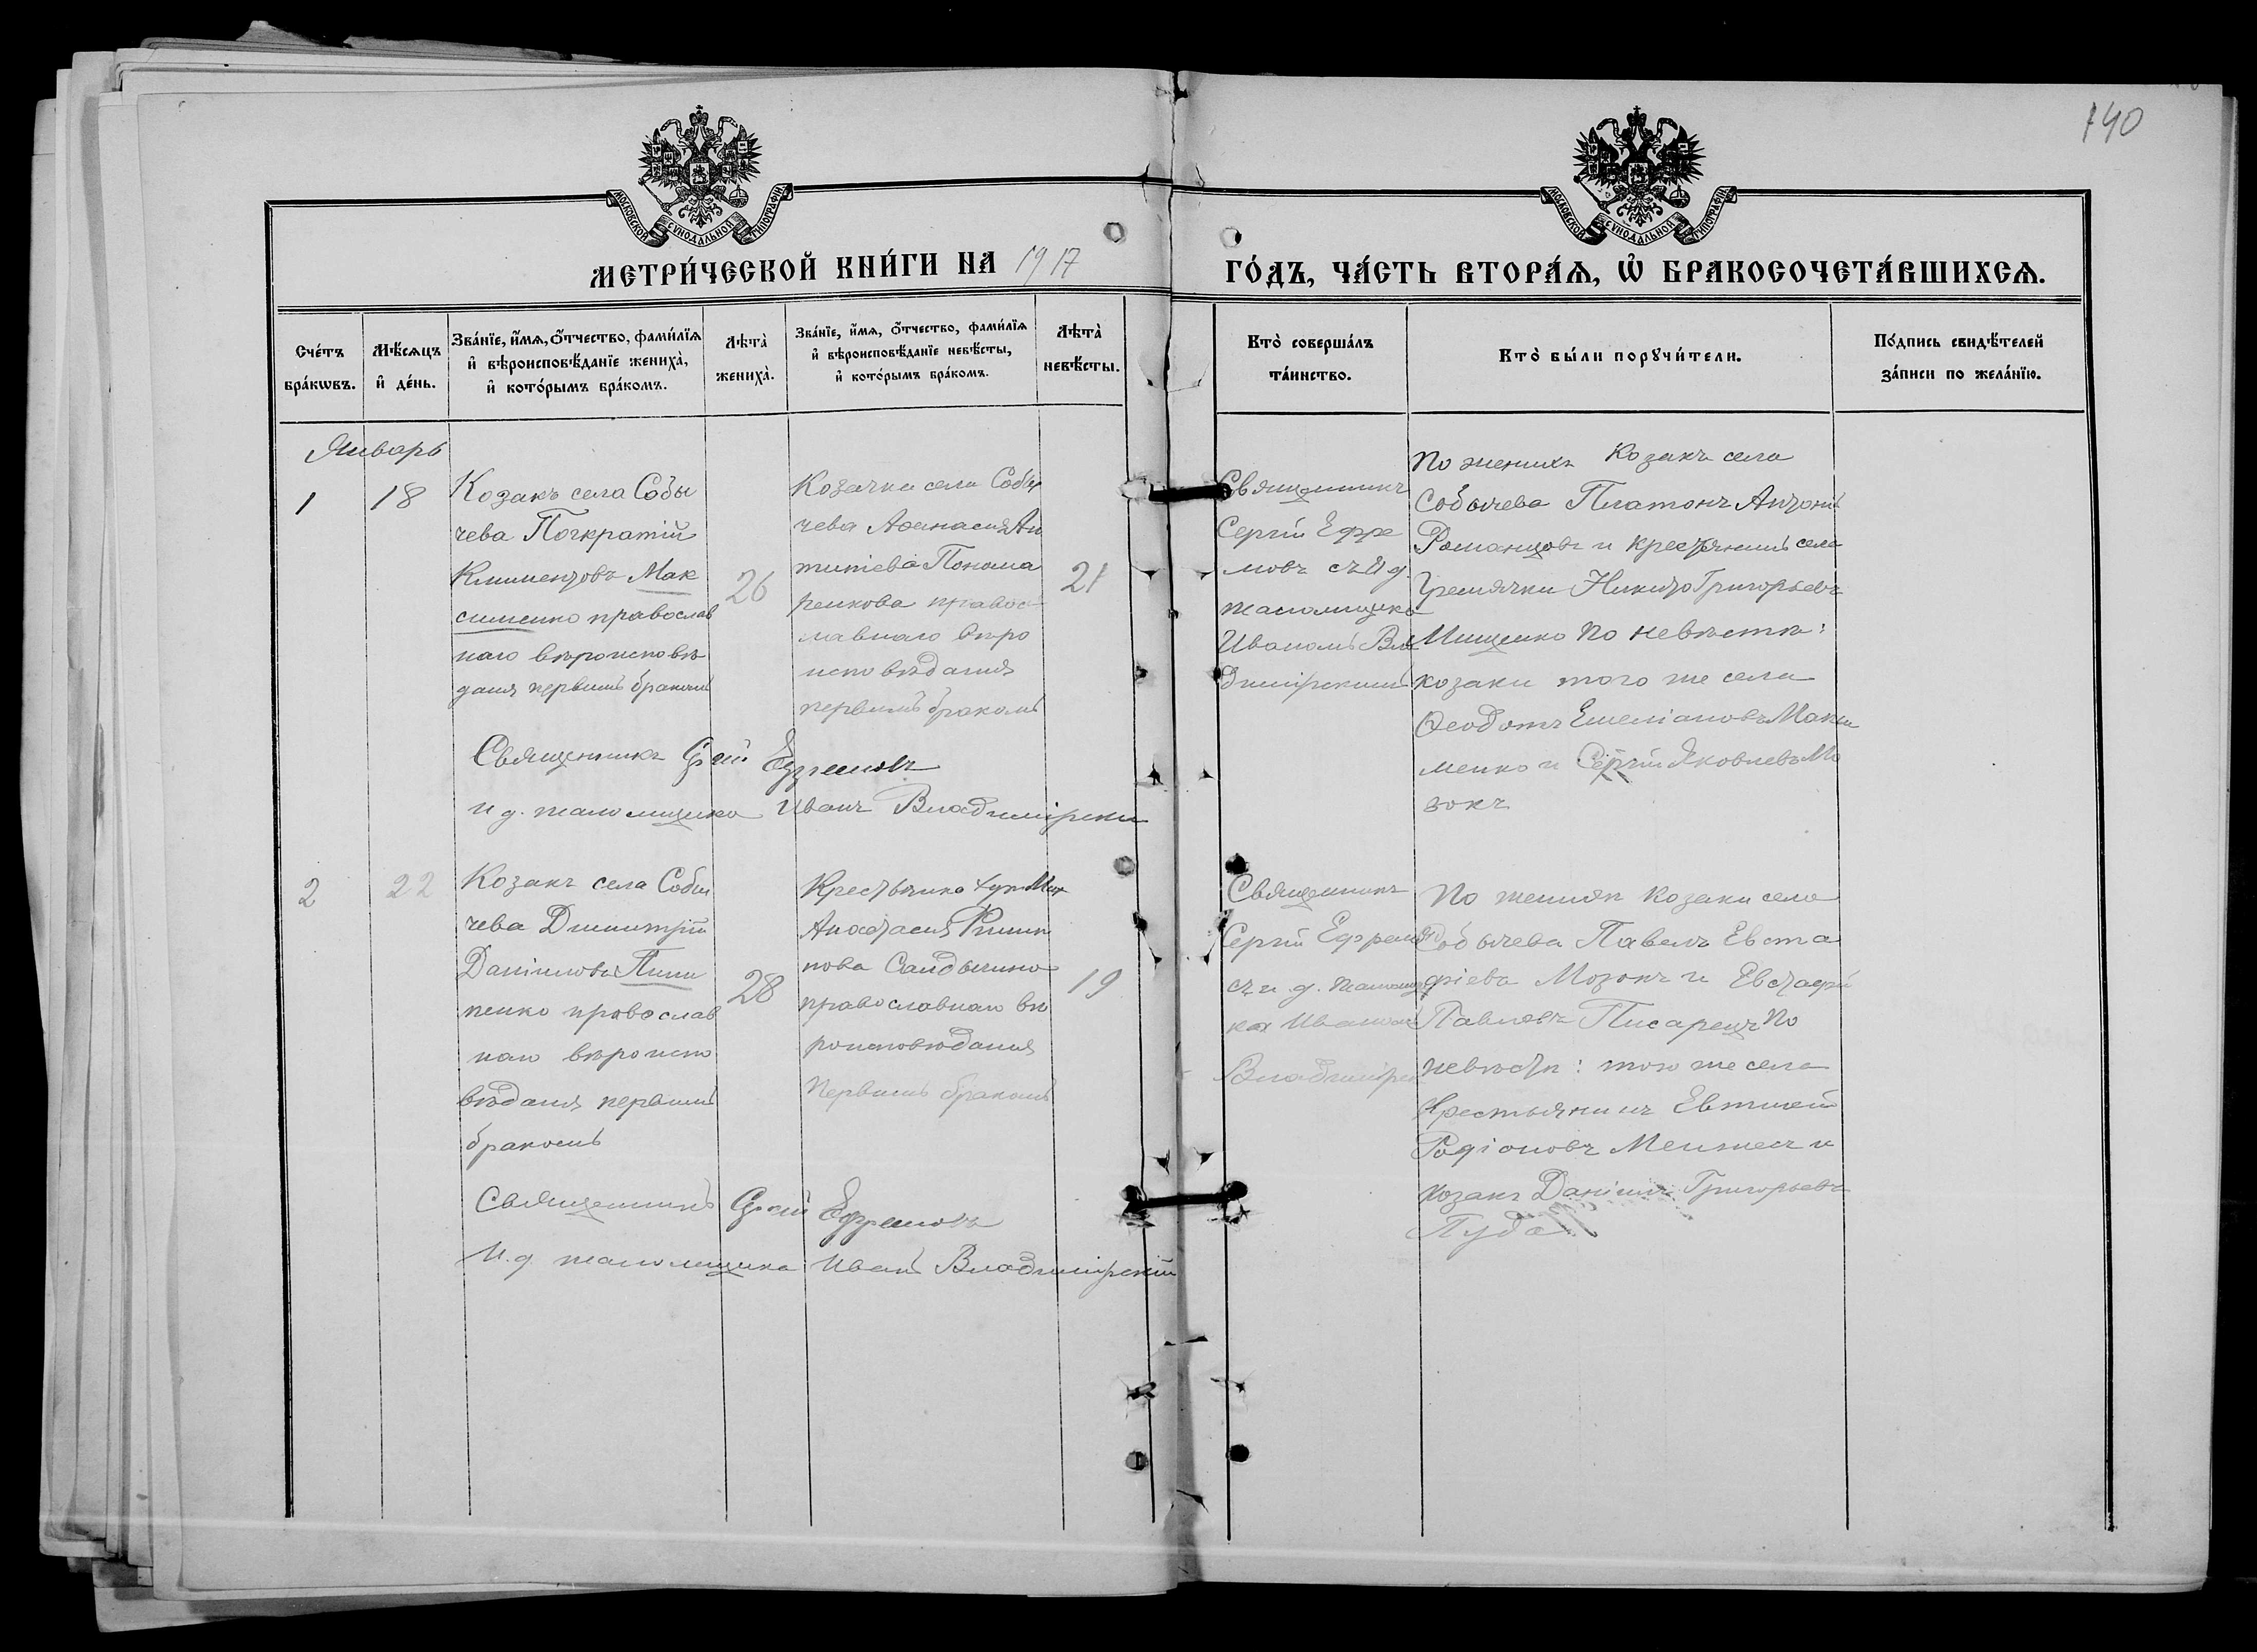 140
МОСКОВСКОЙ СѴНОДАЛЬНОЙ ТИПОГРАФІИ
МОСКОВСКОЙ СѴНОДАЛЬНОЙ ТИПОГРАФІИ
МЕТРИ́ЧЕСКОЙ КНИ́ГИ НА 1917
ГО́ДЪ, ЧА́СТЬ ВТОРА́Ѧ, Ѽ БРАКОСОЧЕТА́ВШИХСѦ.
Сче́тъ бра́кѡвъ.
Мѣ́сѧцъ и҆ де́нь.
Зва́нїе, и҆́мѧ, ѻ҆́тчество, фами́лїѧ
и҆ вѣроисповѣ́данїе жениха̀,
и҆ кото́рымъ бра́комъ.
Лѣта̀ жениха̀.
Зва́нїе, и҆́мѧ, ѻ҆́тчество, фами́лїѧ
и҆ вѣроисповѣ́данїе невѣ́сты,
и҆ кото́рымъ бра́комъ.
Лѣта̀ невѣ́сты.
Кто̀ соверша́лъ
та́инство.
Кто̀ бы́ли порꙋчи́тели.
По́дпись свидѣ́телей
за́писи по жела́нїю.
Январь
1
18
Козакъ села Собы
чева Панкратій
Климентовъ Мак
сименко православ
наго вѣроисповѣ
данія первымъ бракомъ
26
Козачка села Собы
чева Аѳанасія Ан
типіева Понома
ренкова правос
лавнаго вѣро
исповѣданія
первымъ бракомъ
21
Священникъ
Сергій Ефре
мовъ съ И д.
псаломщика
Иваномъ Вла
димірскимъ
По женихѣ Козакъ села
Собычева Платонъ Антоніев
Романцовъ и крестьянинъ села
Гремячки Никита Григорьевъ
Мищенко По невѣстѣ:
козаки того же села
Ѳеодотъ Емеліановъ Макси
менко и Сергій Яковлевъ Мо
зокъ
Священникъ Сергій Ефремовъ
и д. псаломщика Иванъ Владимірскій
2
22
Козакъ села Собы
чева Димитрій
Даніиловъ Пили
пенко православ
наго вѣроиспо
вѣданія первымъ
бракомъ
28
Крестьянка
Анастасія Филип
пова
православнаго вѣ
роисповѣданія
Первымъ бракомъ
19
Священникъ
Сергій Ефремовъ
съ и. д. псаломщи
ка Иваномъ
Владимірск
По женихѣ Козаки села
Собычева Павелъ Евста
фіевъ Мозокъ и Евстафій
Павловъ Писарецъ По
невѣстѣ: того же села
Крестьянинъ Евтихій
Родіоновъ и
козакъ Даніилъ Григорьевъ
Пуда
Священникъ Сергій Ефремовъ
И. д. псаломщика Иванъ Владимірскій